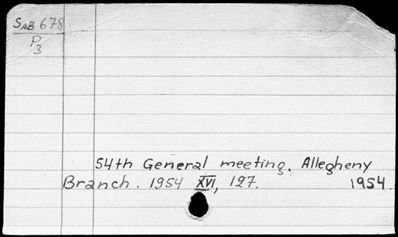 SAB 678
P
3
54th General meeting. Allegheny
Branch. 1954 XVI, 127. 1954.